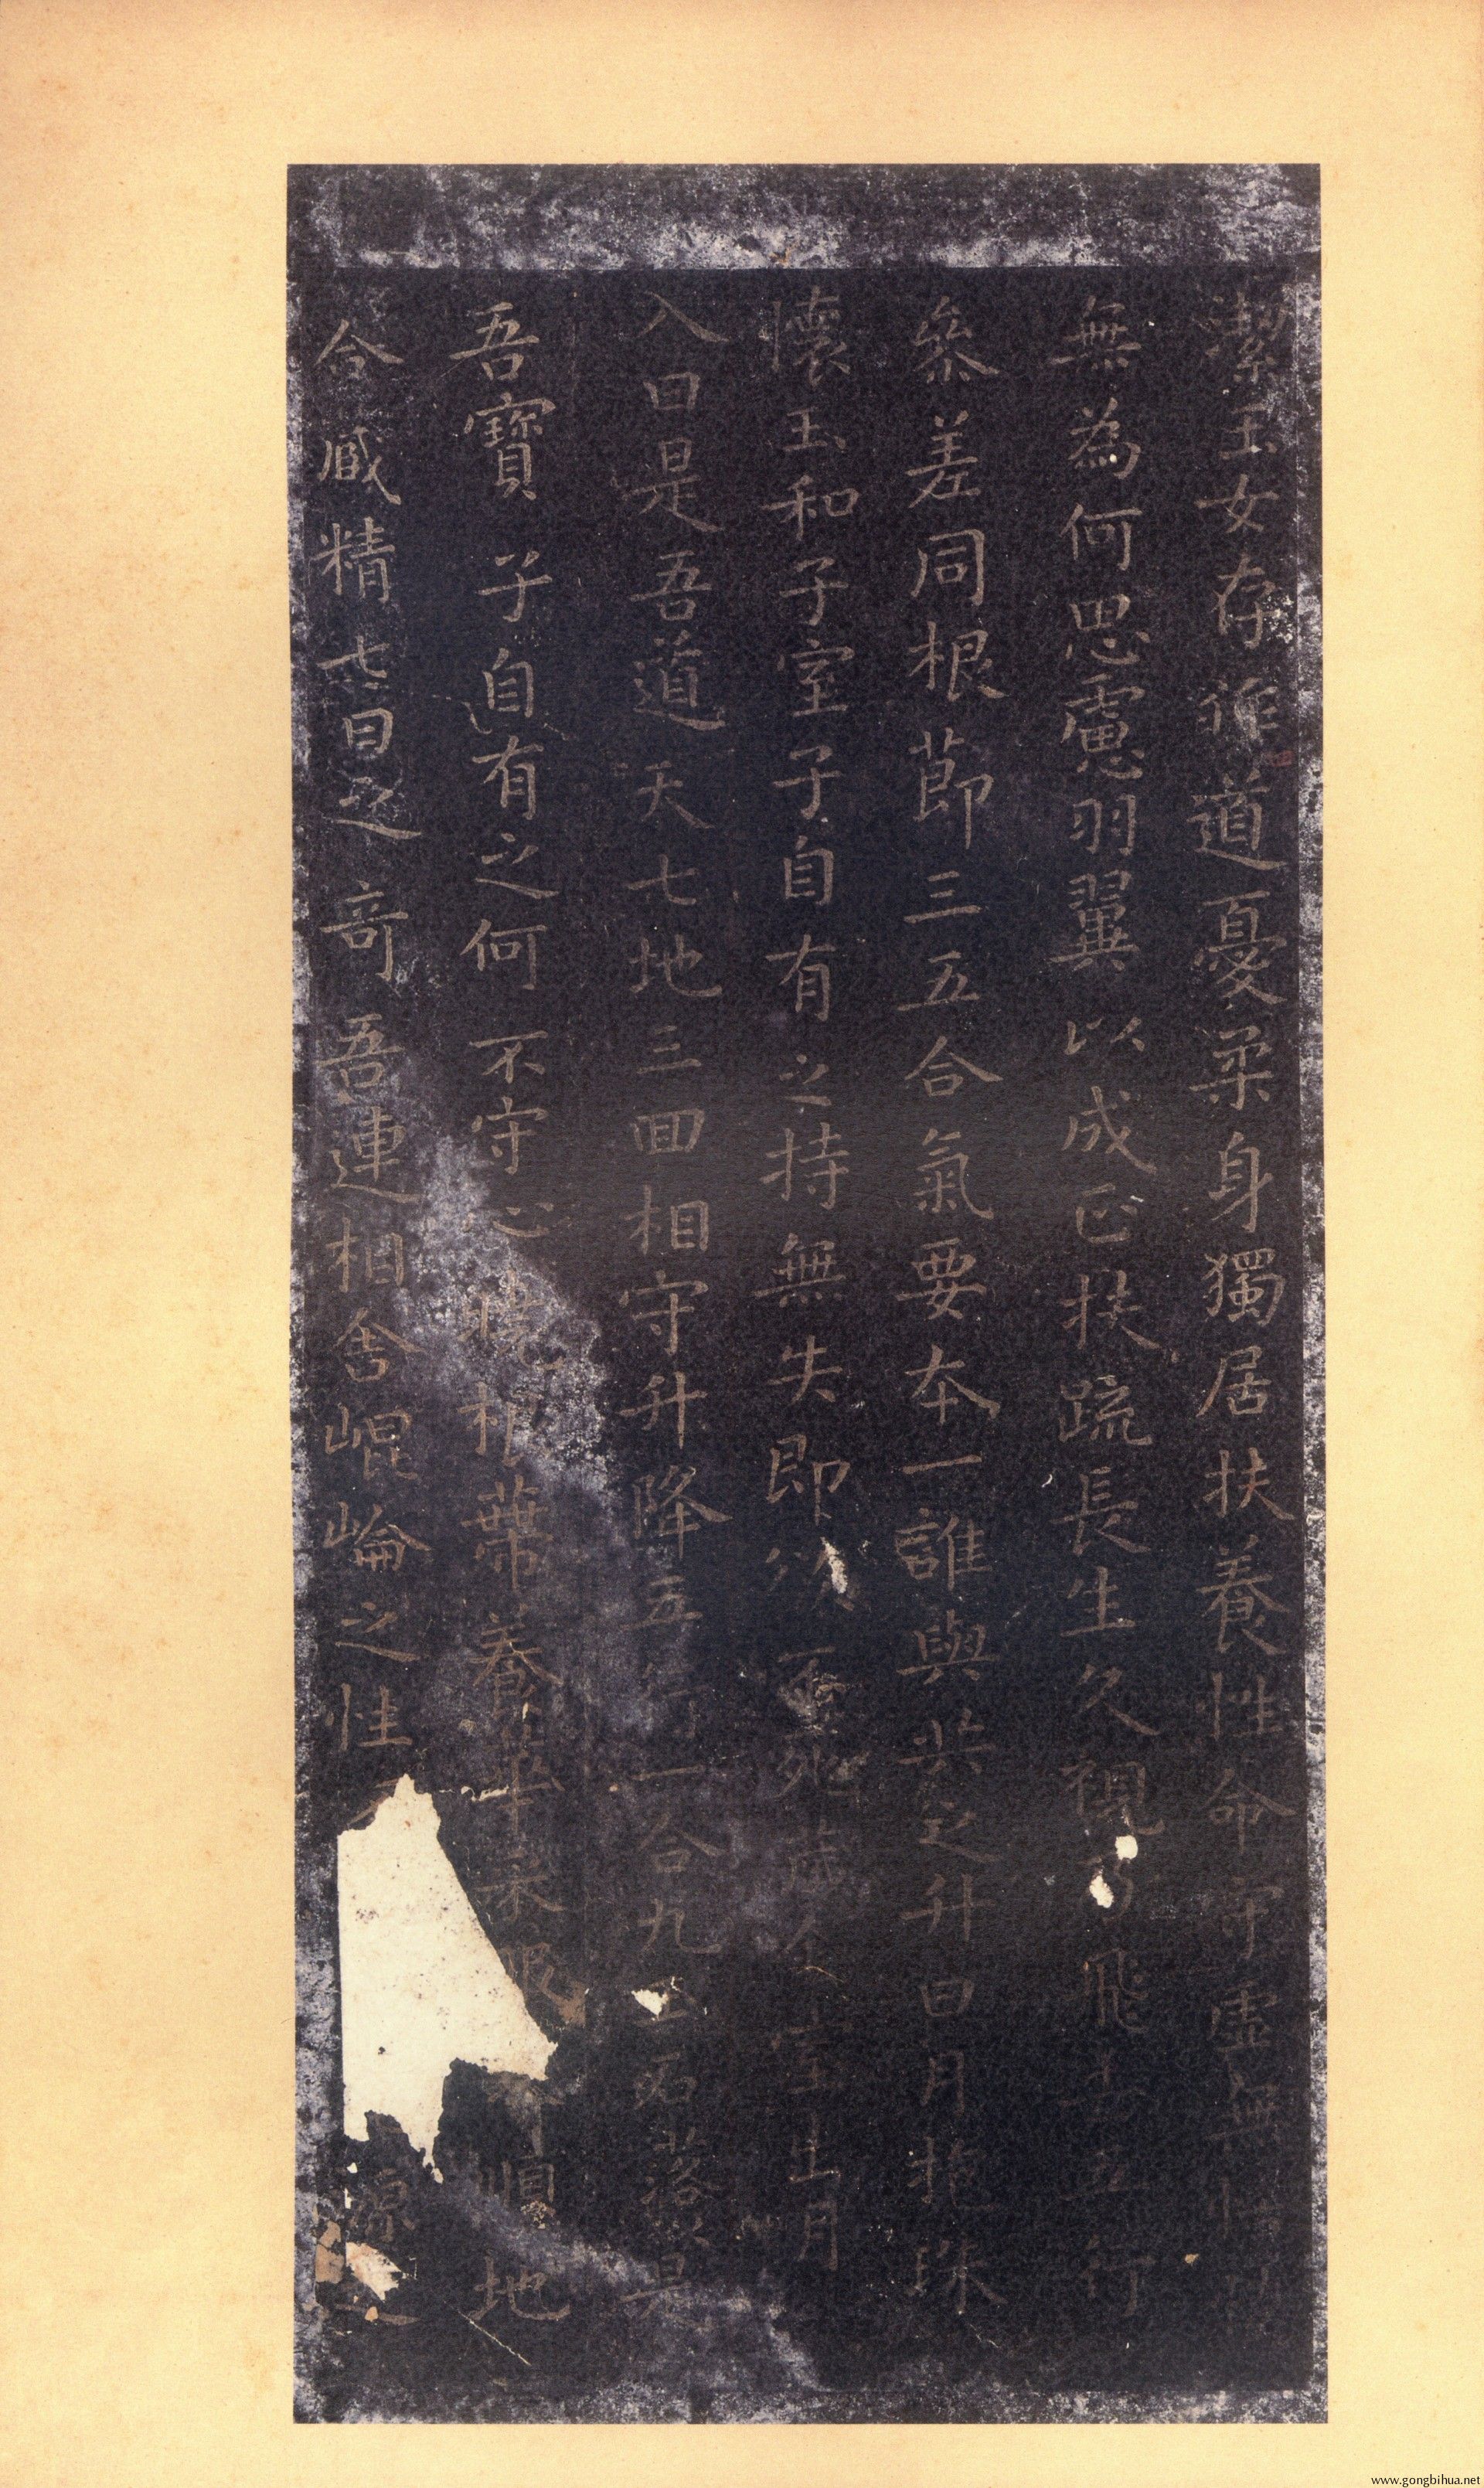 潔玉女存作道憂柔身獨居扶養性命守虛無恬
無為何思慮羽翼以成正扶疏長生久視乃飛去五行
參差同根節三五合氣要本一誰與共之升日月抱珠
懷玉和子室子自有之持無失即得不死藏金室出月
入日是吾道天七地三回相守升降五行一合九玉石落落是
吾寶子自有之何不守心曉根蒂養華采服順地
合藏精七日之奇吾連相舍崐崘之性
www.gongbihua.net